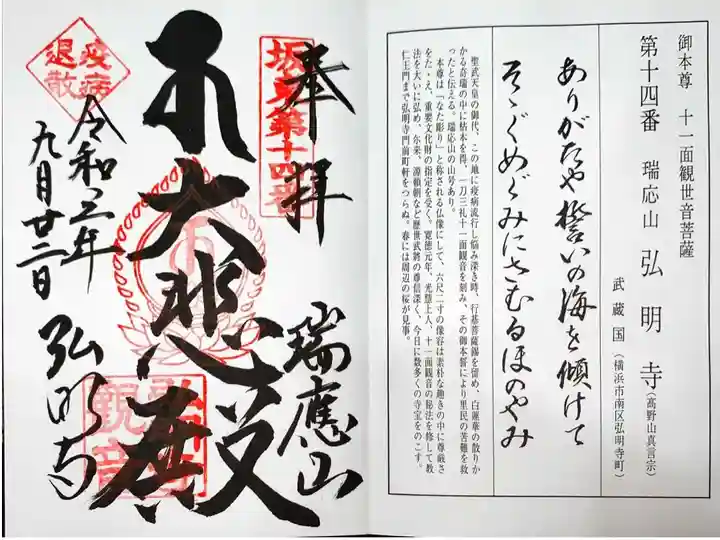 御本尊 十一面観世音菩薩
第十四番 瑞応山 弘明寺(高野山真言宗)
武蔵国(横浜市南区弘明寺町)
ありがたや誓いの海を傾けて
そゝぐめぐみにさむるほのやみ
聖武天皇の御代、この地に疫病流行し悩み深き時、行基菩薩錫を留め、白蓮華の散りか
かる奇瑞の中に枯木を得、一刀三礼十一面観音を刻み、その御本誓により里民の苦難を救
ったと伝える。瑞応山の山号あり。
本尊は「なた彫り」と称される仏像にして、六尺二寸の像容は素朴な趣きの中に尊厳さ
をたゝえ、重要文化財の指定を受く。寛徳元年、光慧上人、十一面観音の秘法を修して教
法を大いに弘め、尓来、源頼朝など歴世武将の尊信深く、今日に数多くの寺宝をのこす。
仁王門まで弘明寺門前町軒をつらぬ。春には周辺の桜が見事。
奉拝
坂東第十四番
瑞應山
大悲殿
疫病
退散
令和三年
九月廿二日
弘明寺